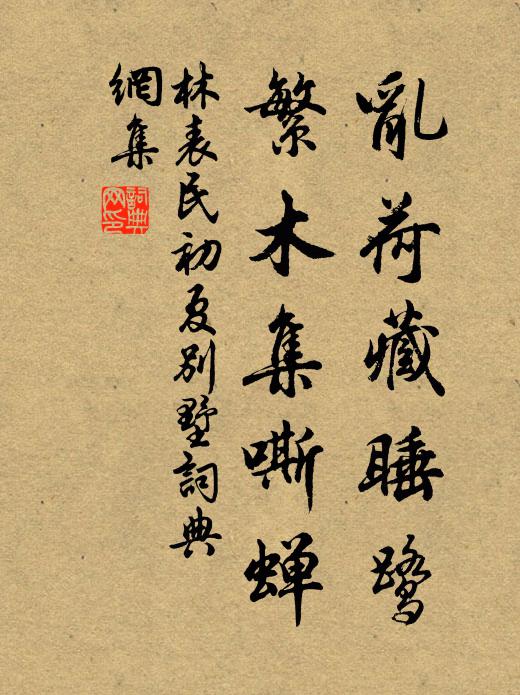 亂荷藏睡鷺
繁木集嘶蝉
林表民初夏別墅詞典
網集
詞典網印